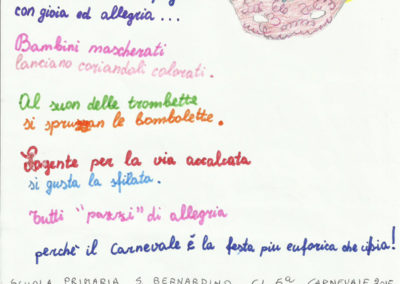 con gioia ed allegria ...
Bambini mascherati
lanciano coriandoli colorati.
Al suon delle trombette
si spruzzan le bombolette.
La gente per la via accalcata
si gusta la sfilata.
Tutti "pazzi" di allegria
perchè il Carnevale è la festa più euforica che ci sia!
SCUOLA PRIMARIA S. BERNARDINO CL 5ª CARNEVALE